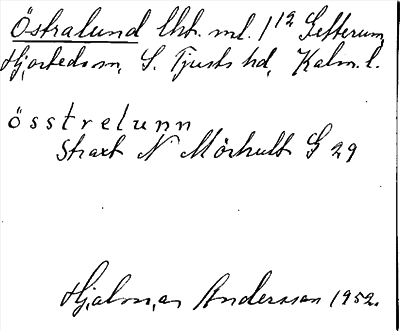 Östralund lht. ml. 1¹² Getterum,
Hjorteds sn, S. Tjusts hd, Kalm. l.
össtrelunn
strax N Mörhult G 29
Hjalmar Andersson 1952.